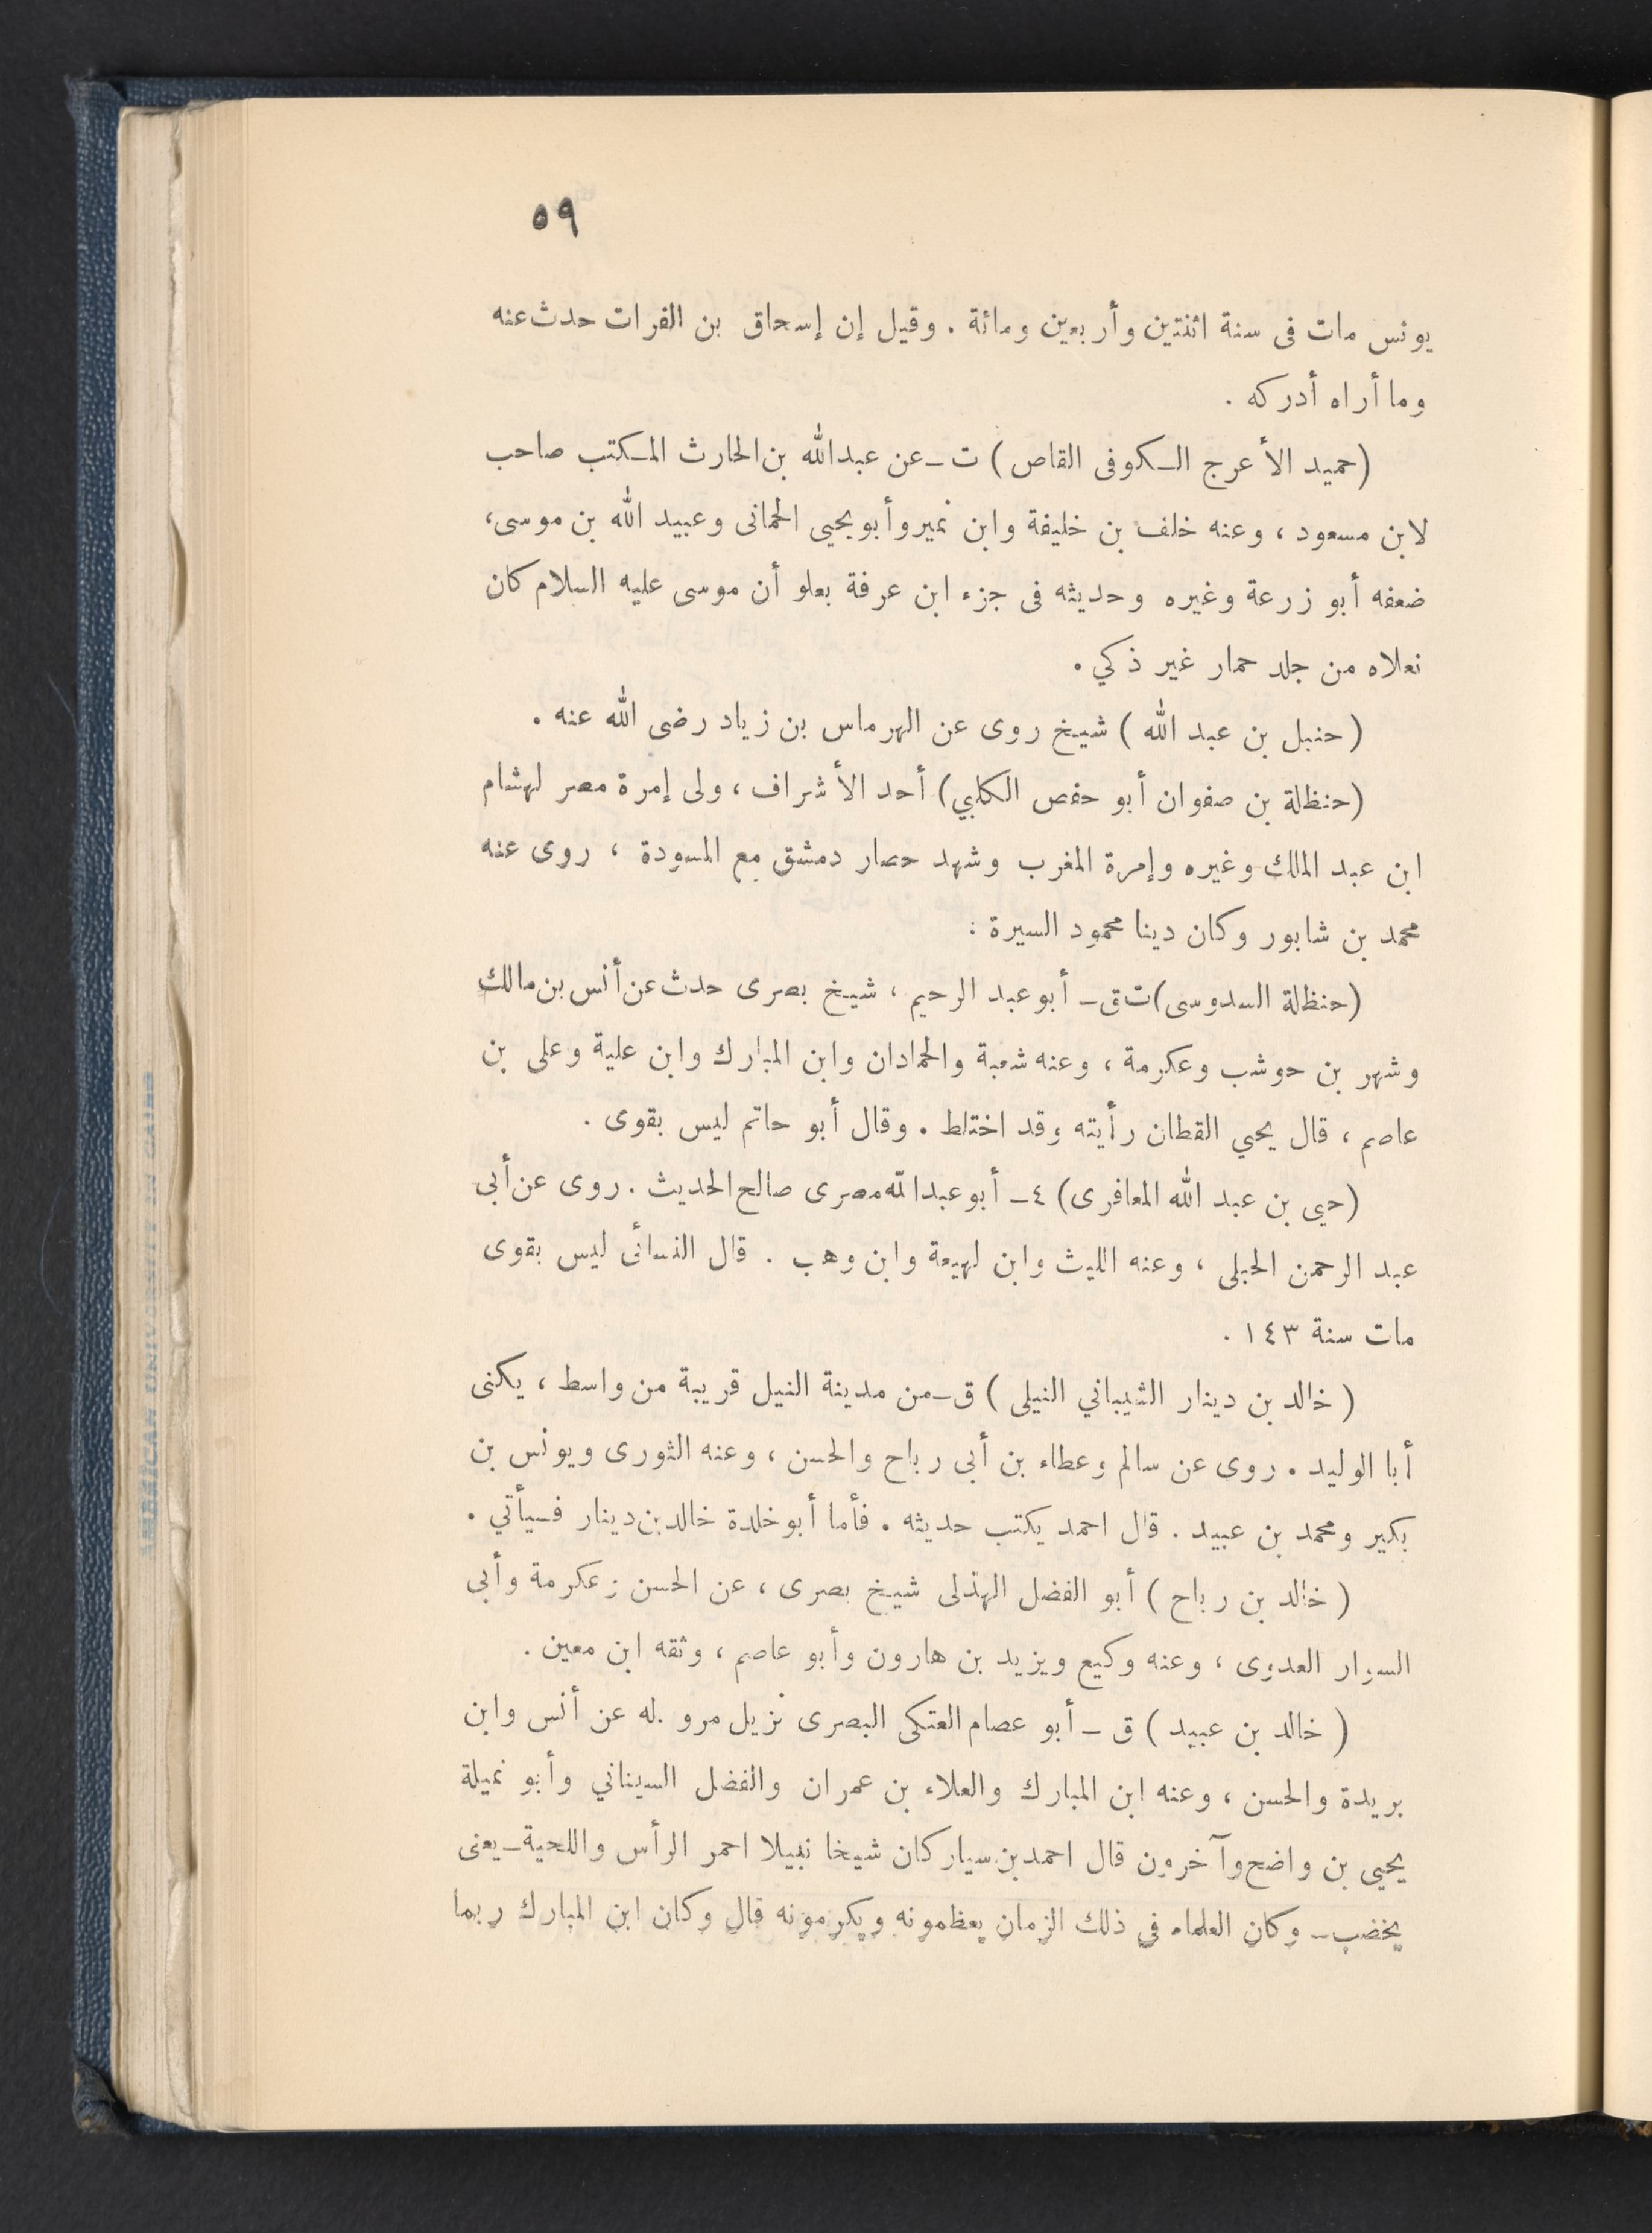 ٥٩
يونس مات فى سنة اثنتين وأربعين ومائة . وقيل إن إسحاق بن الفرات حدث عنه
وما أراه أدركه .
(حميد الأعرج الكوفى القاص) ت ـ عن عبدالله بن الحارث المكتب صاحب
لابن مسعود ، وعنه خلف بن خليفة وابن نمير وأبو يحيى الحمانى وعبيد الله بن موسى،
ضعفه أبو زرعة وغيره وحديثه فى جزء ابن عرفة بعلو أن موسى عليه السلام كان
نعلاه من جلد حمار غير ذكي .
(حنبل بن عبد الله) شيخ روى عن الهرماس بن زياد رضى الله عنه .
(حنظلة بن صفوان أبو حفص الكلبي) أحد الأشراف ، ولى إمرة مصر لهشام
ابن عبد الملك وغيره وإمرة المغرب وشهد حصار دمشق مع المسودة ، روى عنه
محمد بن شابور وكان دينا محمود السيرة :
(حنظلة السدوسى) ت ق ـ أبو عبد الرحيم ، شيخ بصرى حدث عن أنس بن مالك
وشهر بن حوشب وعكرمة ، وعنه شعبة والحمادان وابن المبارك وابن علية وعلى بن
عاصم ، قال يحيي القطان رأيته وقد اختلط . وقال أبو حاتم ليس بقوى .
(حيي بن عبد الله المعافرى) ٤ ـ أبو عبدالله مصرى صالح الحديث . روى عن أبى
عبد الرحمن الحبلى ، وعنه الليث وابن لهيعة وابن وهب . قال النسائى ليس بقوى
مات سنة ١٤٣ .
(خالد بن دينار الشيباني النيلى) ق ـ من مدينة النيل قريبة من واسط ، يكنى
أبا الوليد . روى عن سالم وعطاء بن أبى رباح والحسن ، وعنه الثورى ويونس بن
بكير ومحمد بن عبيد . قال احمد يكتب حديثه . فأما أبو خلدة خالد بن دينار فسيأتي .
(خالد بن رباح) أبو الفضل الهذلى شيخ بصرى ، عن الحسن وعكرمة وأبى
السوار العدوى ، وعنه وكيع ويزيد بن هارون وأبو عاصم ، وثقه ابن معين .
(خالد بن عبيد) ق ـ أبو عصام العتكى البصرى نزيل مرو . له عن أنس وابن
بريدة والحسن ، وعنه ابن المبارك والعلاء بن عمران والفضل السيناني وأبو نميلة
يحيى بن واضح وآخرون قال احمد بن سيار كان شيخا نبيلا احمر الرأس واللحية ـ يعنى
يخضب ـ وكان العلماء في ذلك الزمان يعظمونه ويكرمونه قال وكان ابن المبارك ربما